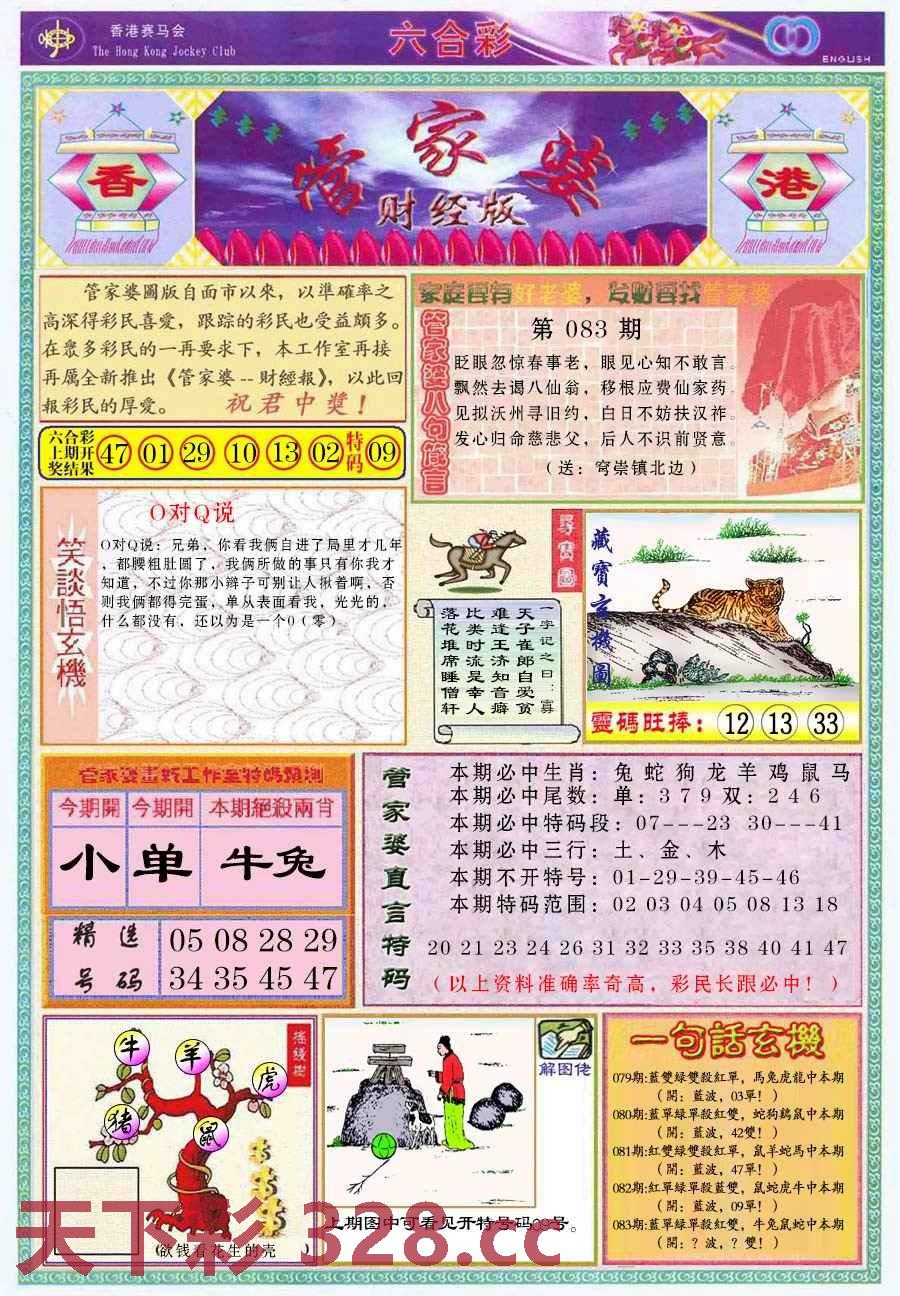 香港赛马会
The Hong Kong Jockey Club
六合彩
ENGLISH
香
管家婆
财经版
港
管家婆圖版自面市以來，以準確率之
高深得彩民喜愛，跟踪的彩民也受益頗多。
在眾多彩民的一再要求下，本工作室再接
再厲全新推出《管家婆--財經報》，以此回
報彩民的厚愛。 祝君中獎！
六合彩
上期开
奖结果
47 01 29 10 13 02 特码 09
家庭要有好老婆，发财要找管家婆
管家婆八句箴言
第 083 期
眨眼忽惊春事老，眼见心知不敢言。
飘然去谒八仙翁，移根应费仙家药。
见拟沃州寻旧约，白日不妨扶汉祚。
发心归命慈悲父，后人不识前贤意。
（送：穹崇镇北边）
笑談悟玄機
O对Q说
O对Q说：兄弟，你看我俩自进了局里才几年
，都腰粗肚圆了，我俩所做的事只有你我才
知道，不过你那小辫子可别让人揪着啊，否
则我俩都得完蛋，单从表面看我，光光的，
什么都没有，还以为是一个0（零）。
尋寶圖
一字记之曰：寡
天子崔郎自爱贫
难逢王济知音癖
比类时流是幸人
落花堆席睡僧轩
藏寶玄機圖
靈碼旺捧：12 13 33
管家婆畫软工作室特碼預測
今期開 今期開 本期絕殺兩肖
小 单 牛兔
精选
号码
05 08 28 29
34 35 45 47
管家婆直言特码
本期必中生肖：兔 蛇 狗 龙 羊 鸡 鼠 马
本期必中尾数：单：3 7 9 双：2 4 6
本期必中特码段：07---23 30---41
本期必中三行：土、金、木
本期不开特号：01-29-39-45-46
本期特码范围：02 03 04 05 08 13 18
20 21 23 24 26 31 32 33 35 38 40 41 47
（以上资料准确率奇高，彩民长跟必中！）
摇錢樹
牛
羊
虎
猪
鼠
(欲钱看花生的壳 )
解图佬
上期图中可看见开特号码09号。
一句話玄機
079期:藍雙绿雙殺紅單，馬兔虎龍中本期
（開：藍波，03單！）
080期:藍單緑單殺紅雙，蛇狗鷄鼠中本期
（開：藍波，42雙！）
081期:紅雙緑雙殺紅單，鼠羊蛇馬中本期
（開：藍波，47單！）
082期:紅單緑單殺藍雙，鼠蛇虎牛中本期
（開：藍波，09單！）
083期:藍單緑單殺紅雙，牛兔鼠蛇中本期
（開：？波，？雙！）
天下彩 328.cc